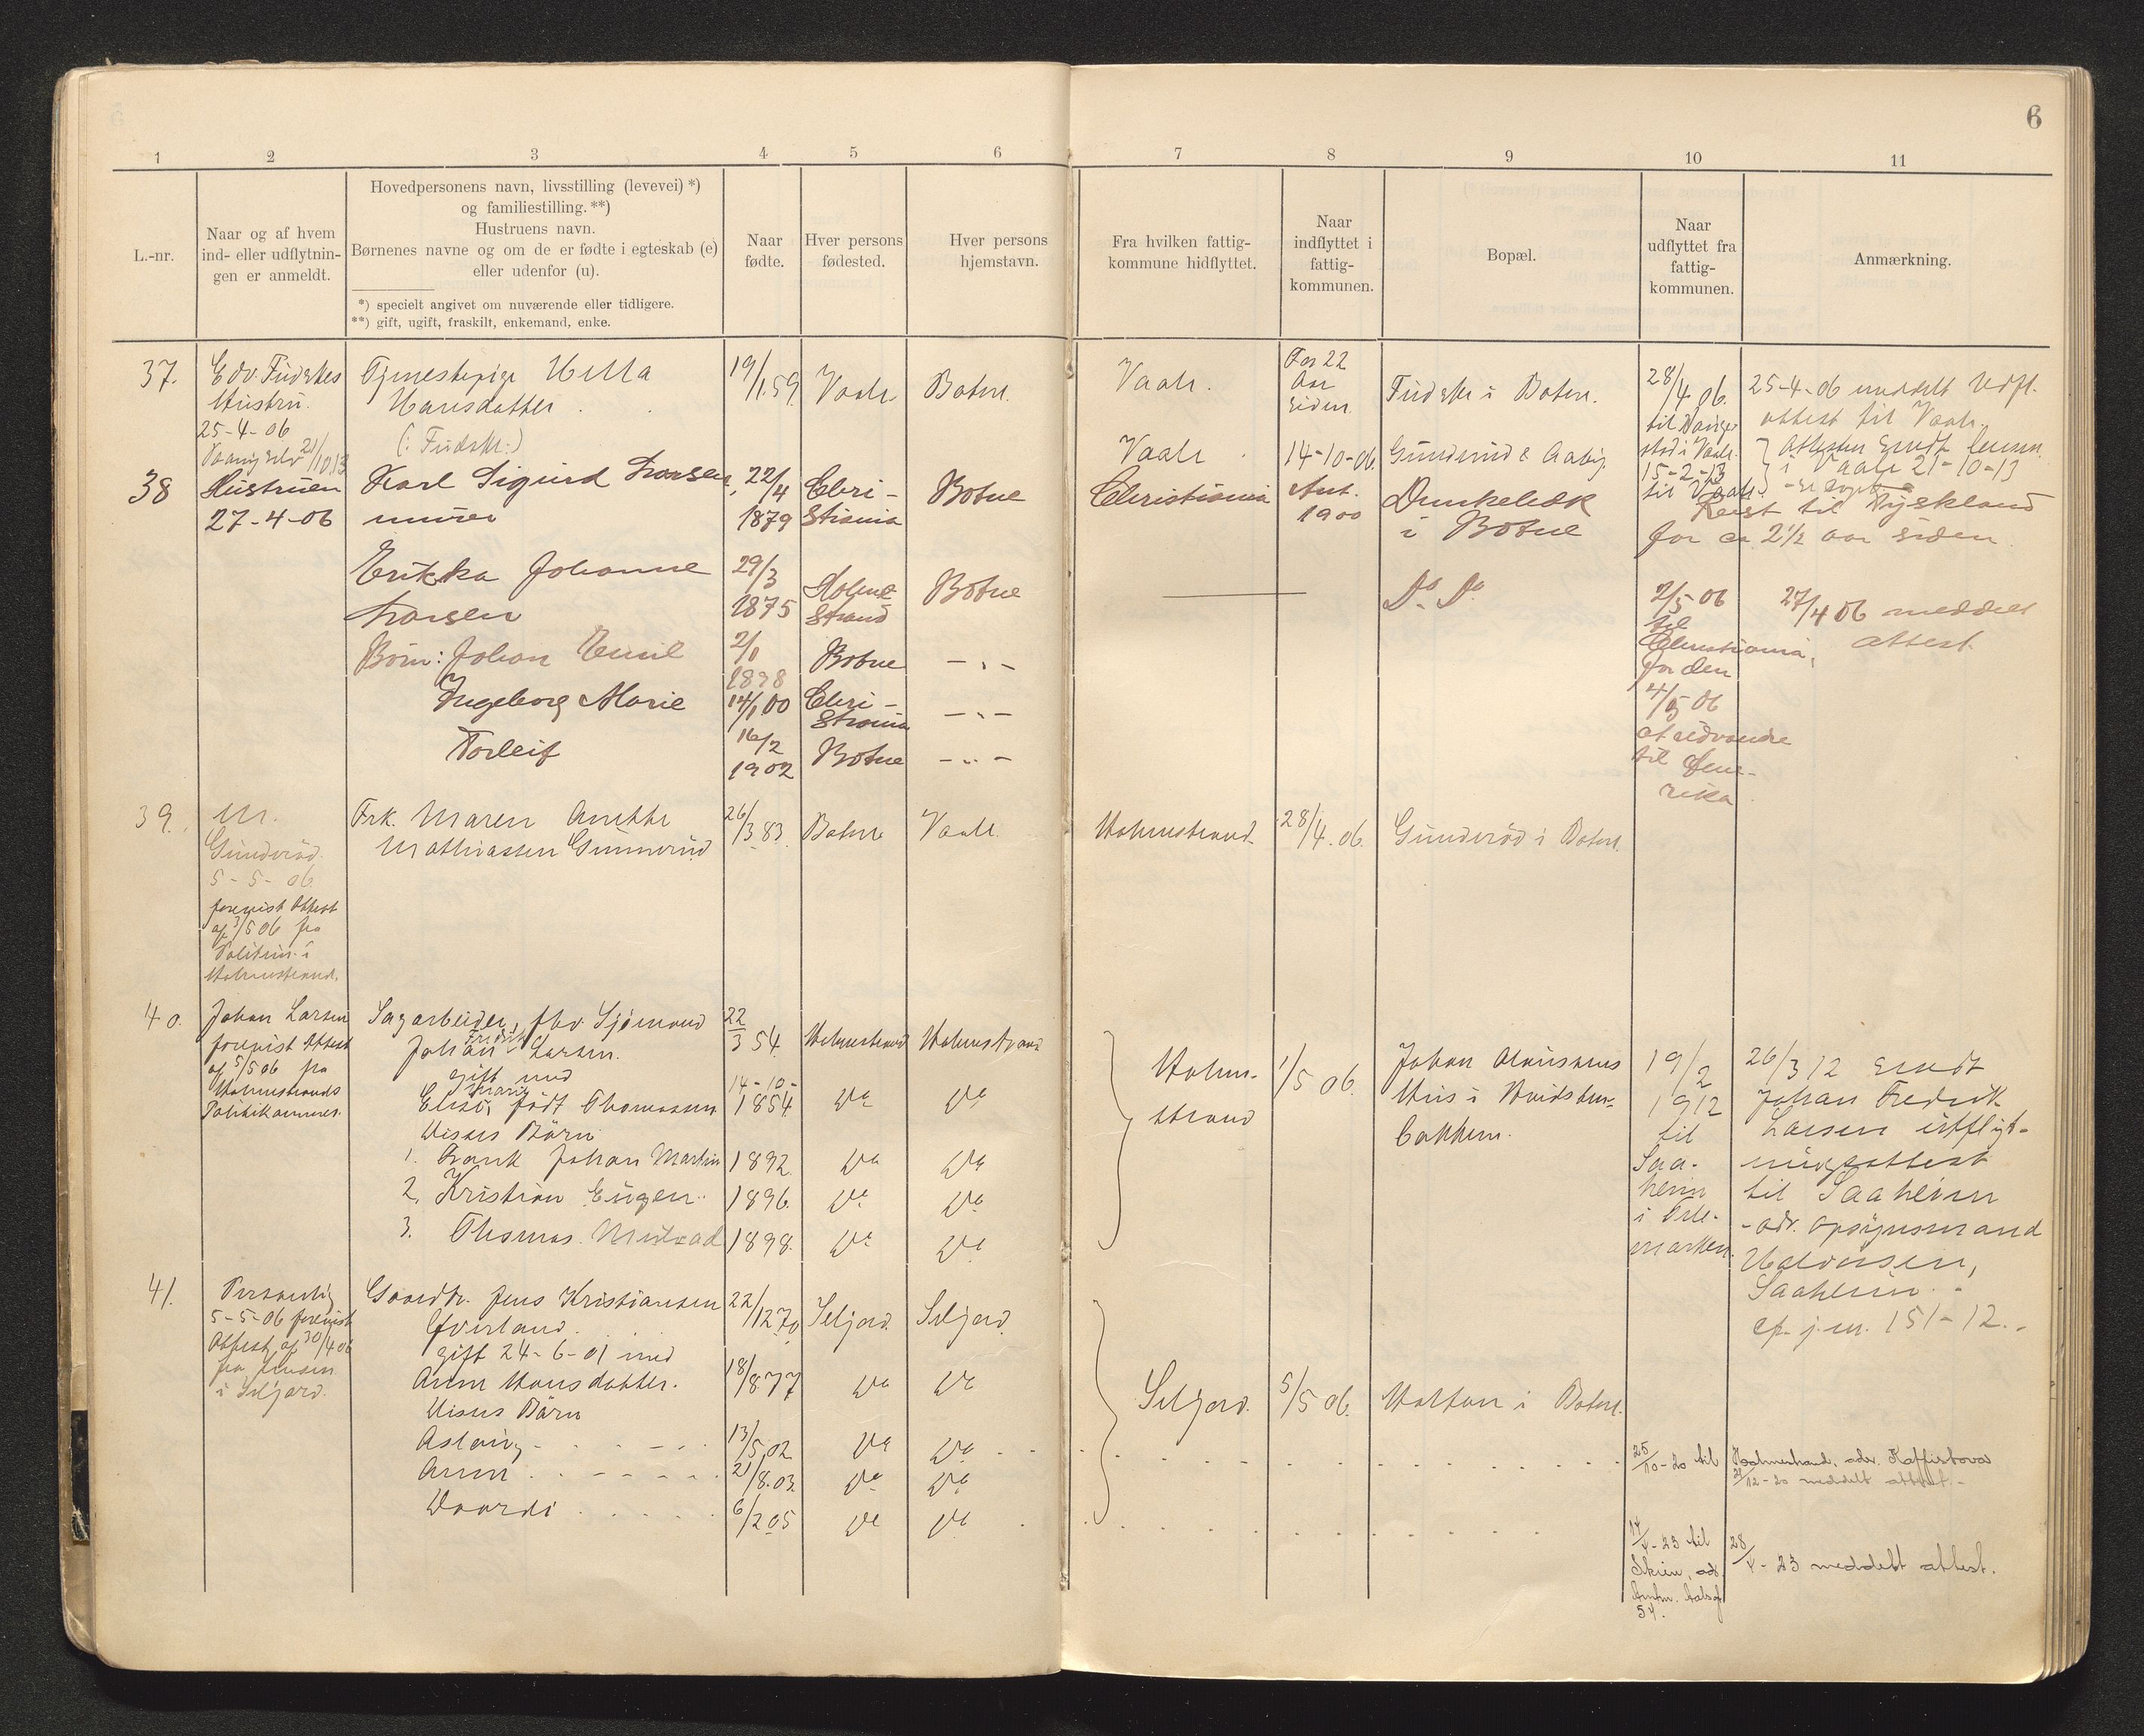 6
1 2 3 4 5 6 7 8 9 10 11
L.-nr.
Naar og af hvem
ind- eller udflytnin-
gen er anmeldt.
Hovedpersonens navn, livsstilling (levevei) *)
og familiestilling. **)
Hustruens navn.
Børnenes navne og om de er fødte i egteskab (e)
eller udenfor (u).
*) specielt angivet om nuværende eller tidligere.
**) gift, ugift, fraskilt, enkemand, enke.
Naar
fødte.
Hver persons
fødested.
Hver persons
hjemstavn.
Fra hvilken fattig-
kommune hidflyttet.
Naar
indflyttet i
fattig-
kommunen.
Bopæl.
Naar
udflyttet fra
fattig-
kommunen.
Anmærkning.
37.
Hustru.
25-4-06
Hansdatter
19/1.59.
Vaale
Botne.
Vaale.
For 22
Aar
siden
i Botne.
28/4.06.
25-4-06 meddelt Udfl.
attest til Vaale
Vaale
14-10-06.
15-2-13
til Vaale
i Vaale 21-10-13
38
Hustruen
27-4-06
Karl Sigurd Larsen,
murer
22/4
1879
Chri-
stiania
Botne
Christiania
Aut.
1900
Dunkebæk
i Botne
Reist til Tyskland
for ca 2½ aar siden
Erikka Johanne
Larsen
29/3
1875
Holme-
strand
Botne
Do Do
2/5 06
til
Christiania,
for den
4/5 06
at udvandre
til Ame-
rika.
27/4 06 meddelt
attest.
Børn: Johan Emil
2/1
1898
Botne
- " -
Ingeborg Marie
14/1 00
Chri-
stiania
- " -
Torleif
16/2
1902
Botne
- " -
39.
M.
Gunderød
5-5-06
forevist Attest
af 3/5 06 fra
Politim. i
Holmestrand.
Frk. Maren Anette
Mathiassen Gunnerud
26/3.83.
Botne
Vaale
Holmestrand.
28/4.06.
Gunderød i Botne.
40.
Johan Larsen
forevist Attest
af 5/5 06 fra
Holmestrands
Politikammer.
Sagarbeider, fhv. Sjømand
Johan Fredrik Larsen.
gift med
Elise Marie, født Thomassen
Disses Børn
1. Frank Johan Martin
2. Kristian Eugen
3. Thomas
22/3 54.
14-10-
1854.
1892.
1896.
1898.
Holmestrand
Holmestrand
Do
Do
Do
Do
Do
Do
Do
Do
Holme-
strand
1/5 06.
Johan
Hus i
bakken.
19/2
1912
til
Saa-
heim
i Tele-
marken.
26/3 12 sendt
Johan Fredrik
Larsen udflyt-
ningsattest
til Saaheim
- adr. Opsynsmand
Halvorsen,
Saaheim. -
cfr. j.nr. 151-12. -
41.
Personlig
5-5-06 forevist
Attest af 30/4 06
fra lensm.
i Seljord.
Gaardbr. Jens Kristiansen
Øverland.
gift 24-6-01 med
Anne Hansdatter.
Disses Børn
Aslaug
Anne
22/12 70
18/8 77
13/5.02
21/8.03.
6/2 05
Seljord
Seljord
Do
Do
Do
Do
Do
Do
Do
Do
Seljord.
5/5 06.
i Botne.
25/10-20 til
Holmestrand, adr. Kaffistova
21/12-20 meddelt attest. -
14/4-23 til
Skien, adr.
54.
28/4-23 meddelt attest.